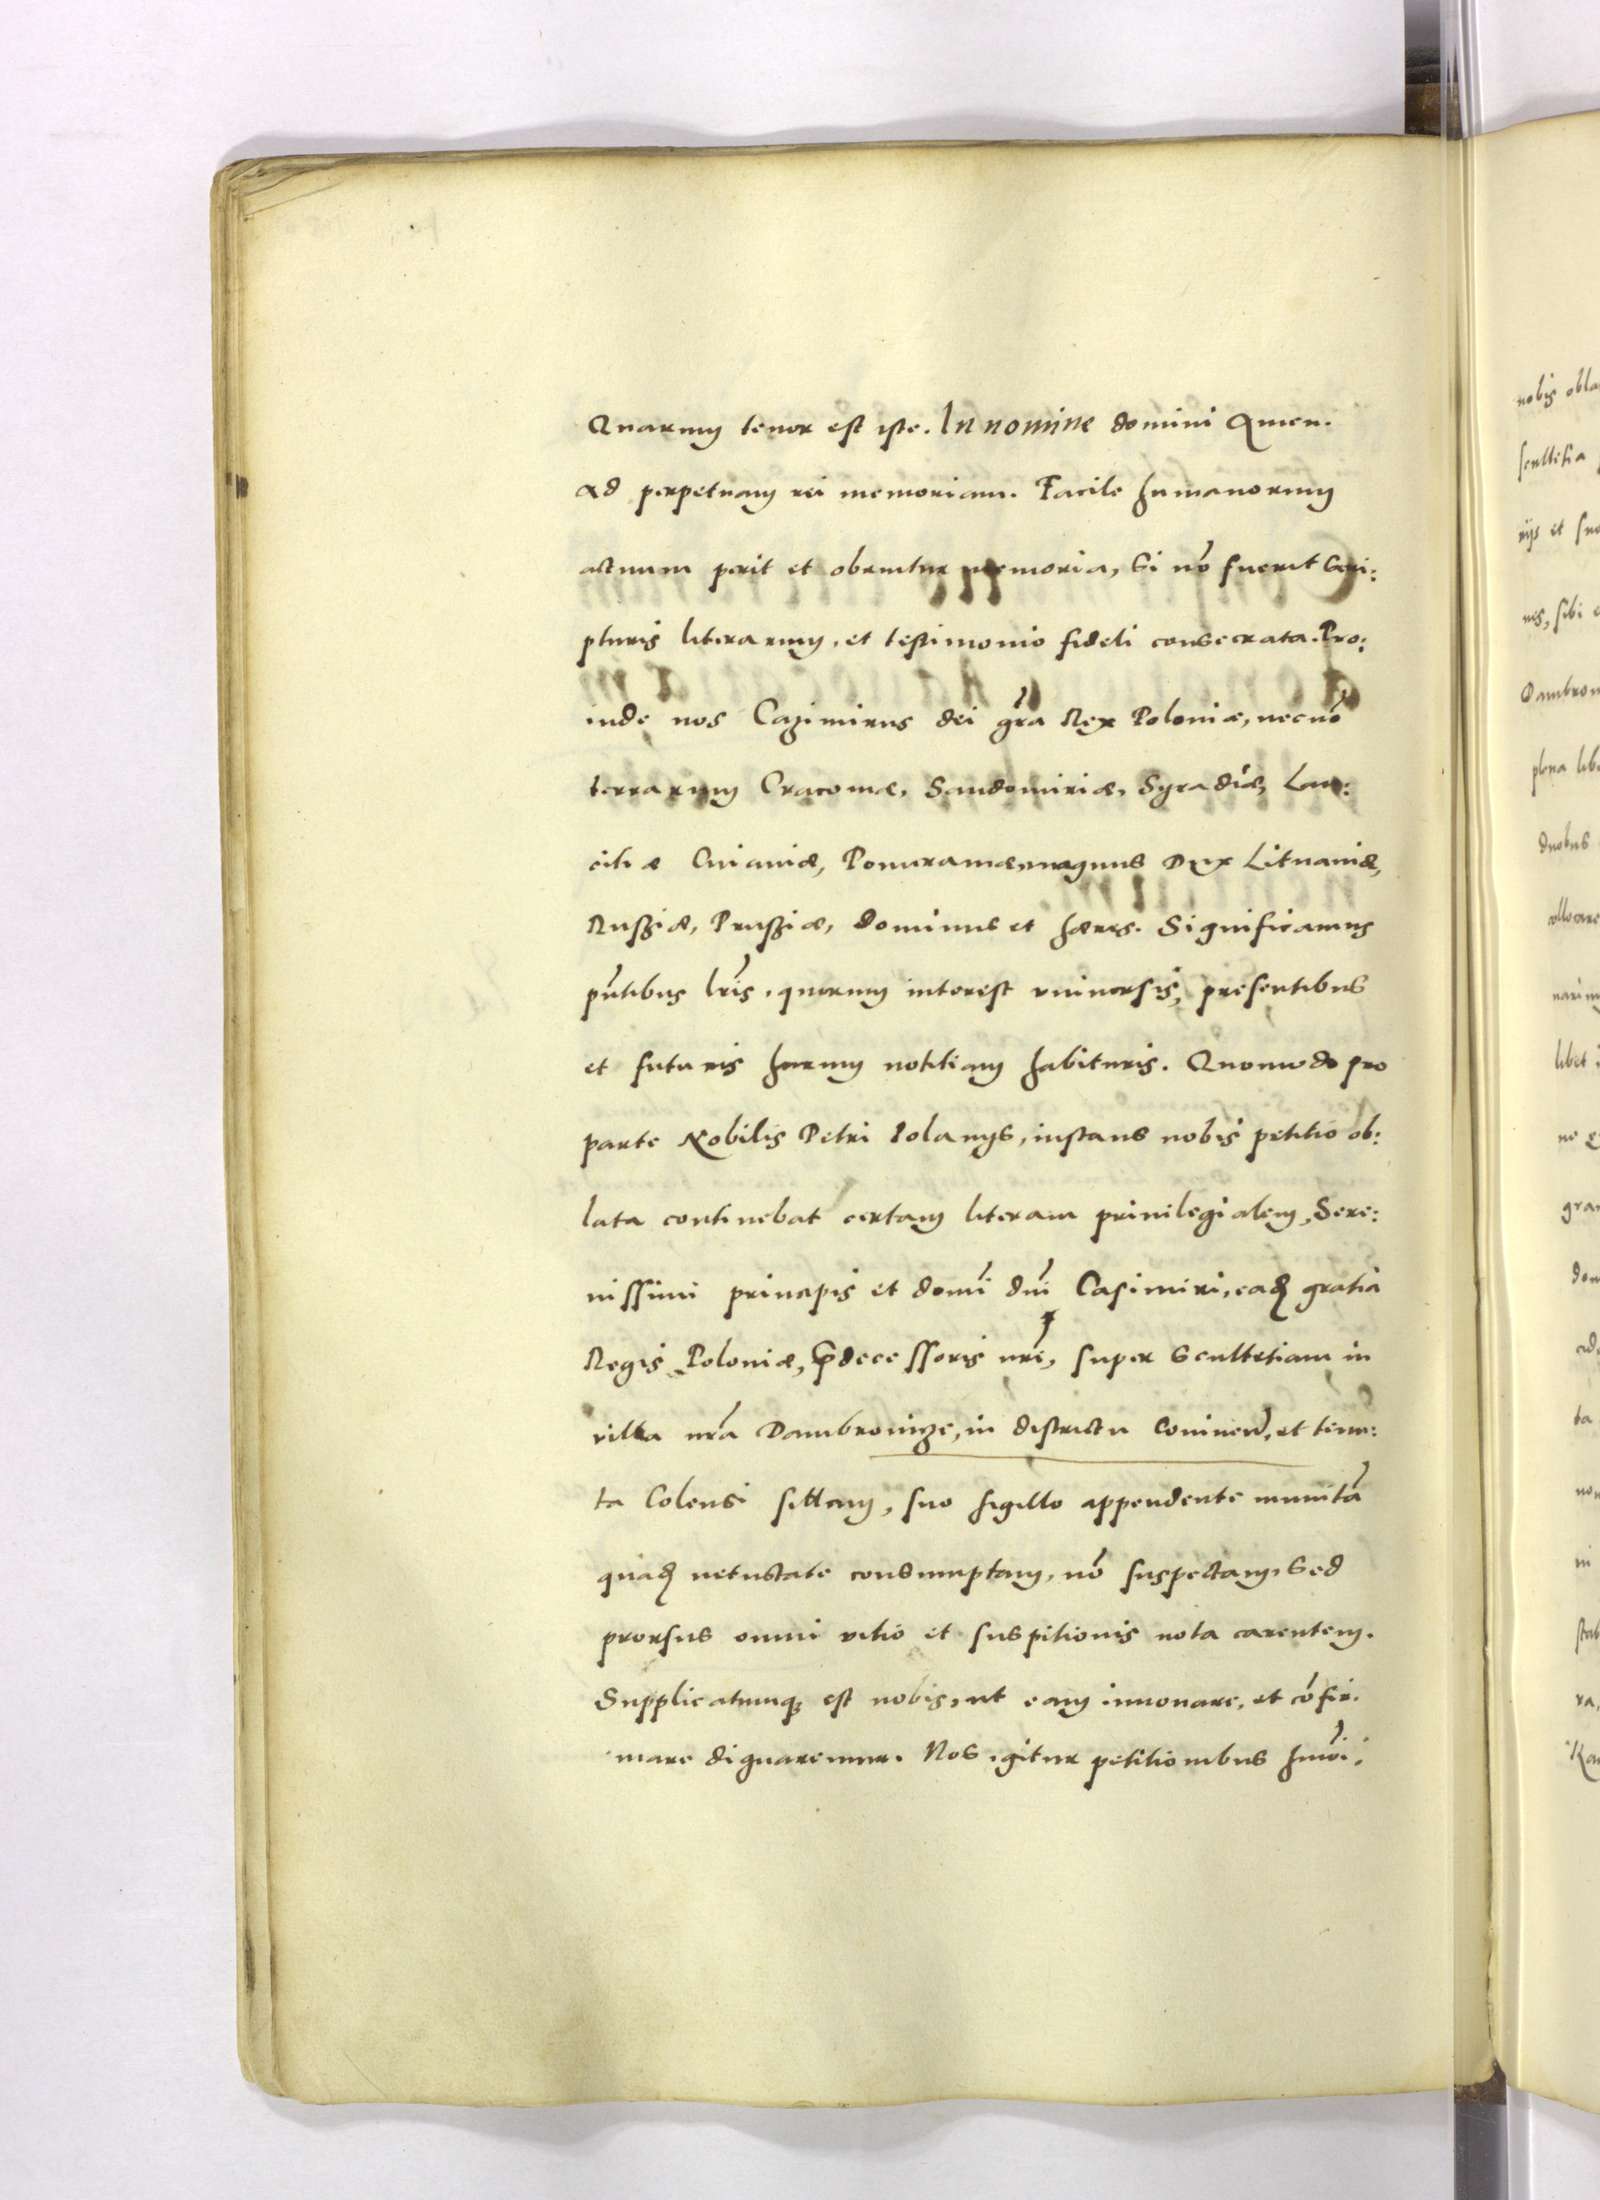 Quarum tenor est iste. In nomine domini Amen.
Ad perpetuam rei memoriam. Facile humanorum
actuum perit et obruitur memoria, Si nō fuerit Scri:
pturis literarum, et testimonio fideli consecrata. Pro:
inde nos Cazimirus dei grã Rex Poloniæ, necnō
terrarum Cracoviæ, Sandomiriæ, Syradiæ, Lan:
citiæ Cuiaviæ, Pomeraniæ, magnus Dux Lituaniæ,
Russiæ, Prussiæ, dominus et hæres. Significamus
pñtibus lris, quorum interest universis, presentibus
et futuris harum notitiam habituris. Quomodo pro
parte Nobilis Petri Polanys, instans nobis petitio ob:
lata continebat certam literam privilegialem, Sere:
nissimi principis et domi dni Casimiri, eadem gratia
Regis Poloniæ, prædecessoris nrĩ, super Scultetiam in
villa nrã Dambrowize, in districtu Coninen, et tenu:
ta Colensi sittam, suo sigillo appendente munitã
quadem vetustate consumptam, nō suspectam, Sed
prorsus omni vitio et suspitionis nota carentem.
Supplicatumq; est nobis, ut eam innovare, et cōfir:
mare dignaremur. Nos igitur petitionibus hmõi:
nobis obla
scultetia
rijs et
nis, sibi
Dambrow
plena lib
duobus
collocare
libet
gra